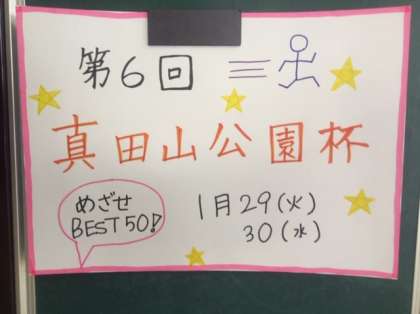 第6回
真田山公園杯
めざせ
BEST50!
1月29(火)
30(水)